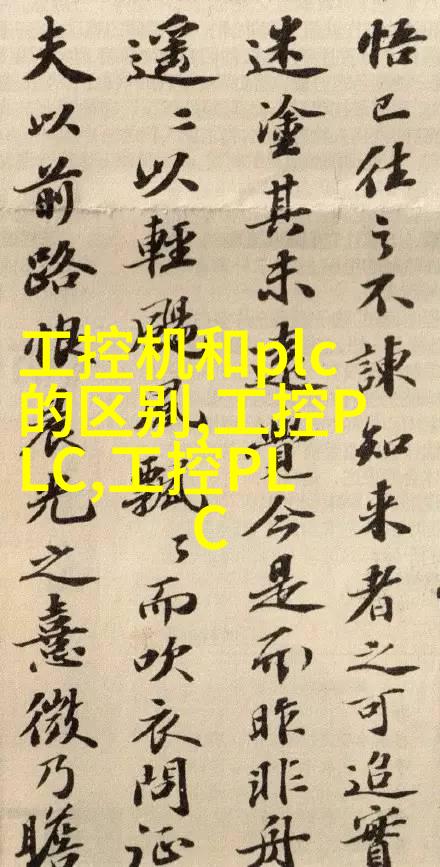 悟已往之不諫知来者之可追實
迷塗其未遠覺今是而昨非舟
遙〻以輕颺風飄〻而吹衣問征
夫以前路恨晨光之熹微乃瞻
工控机和plc
的区别,工控P
LC,工控PL
C